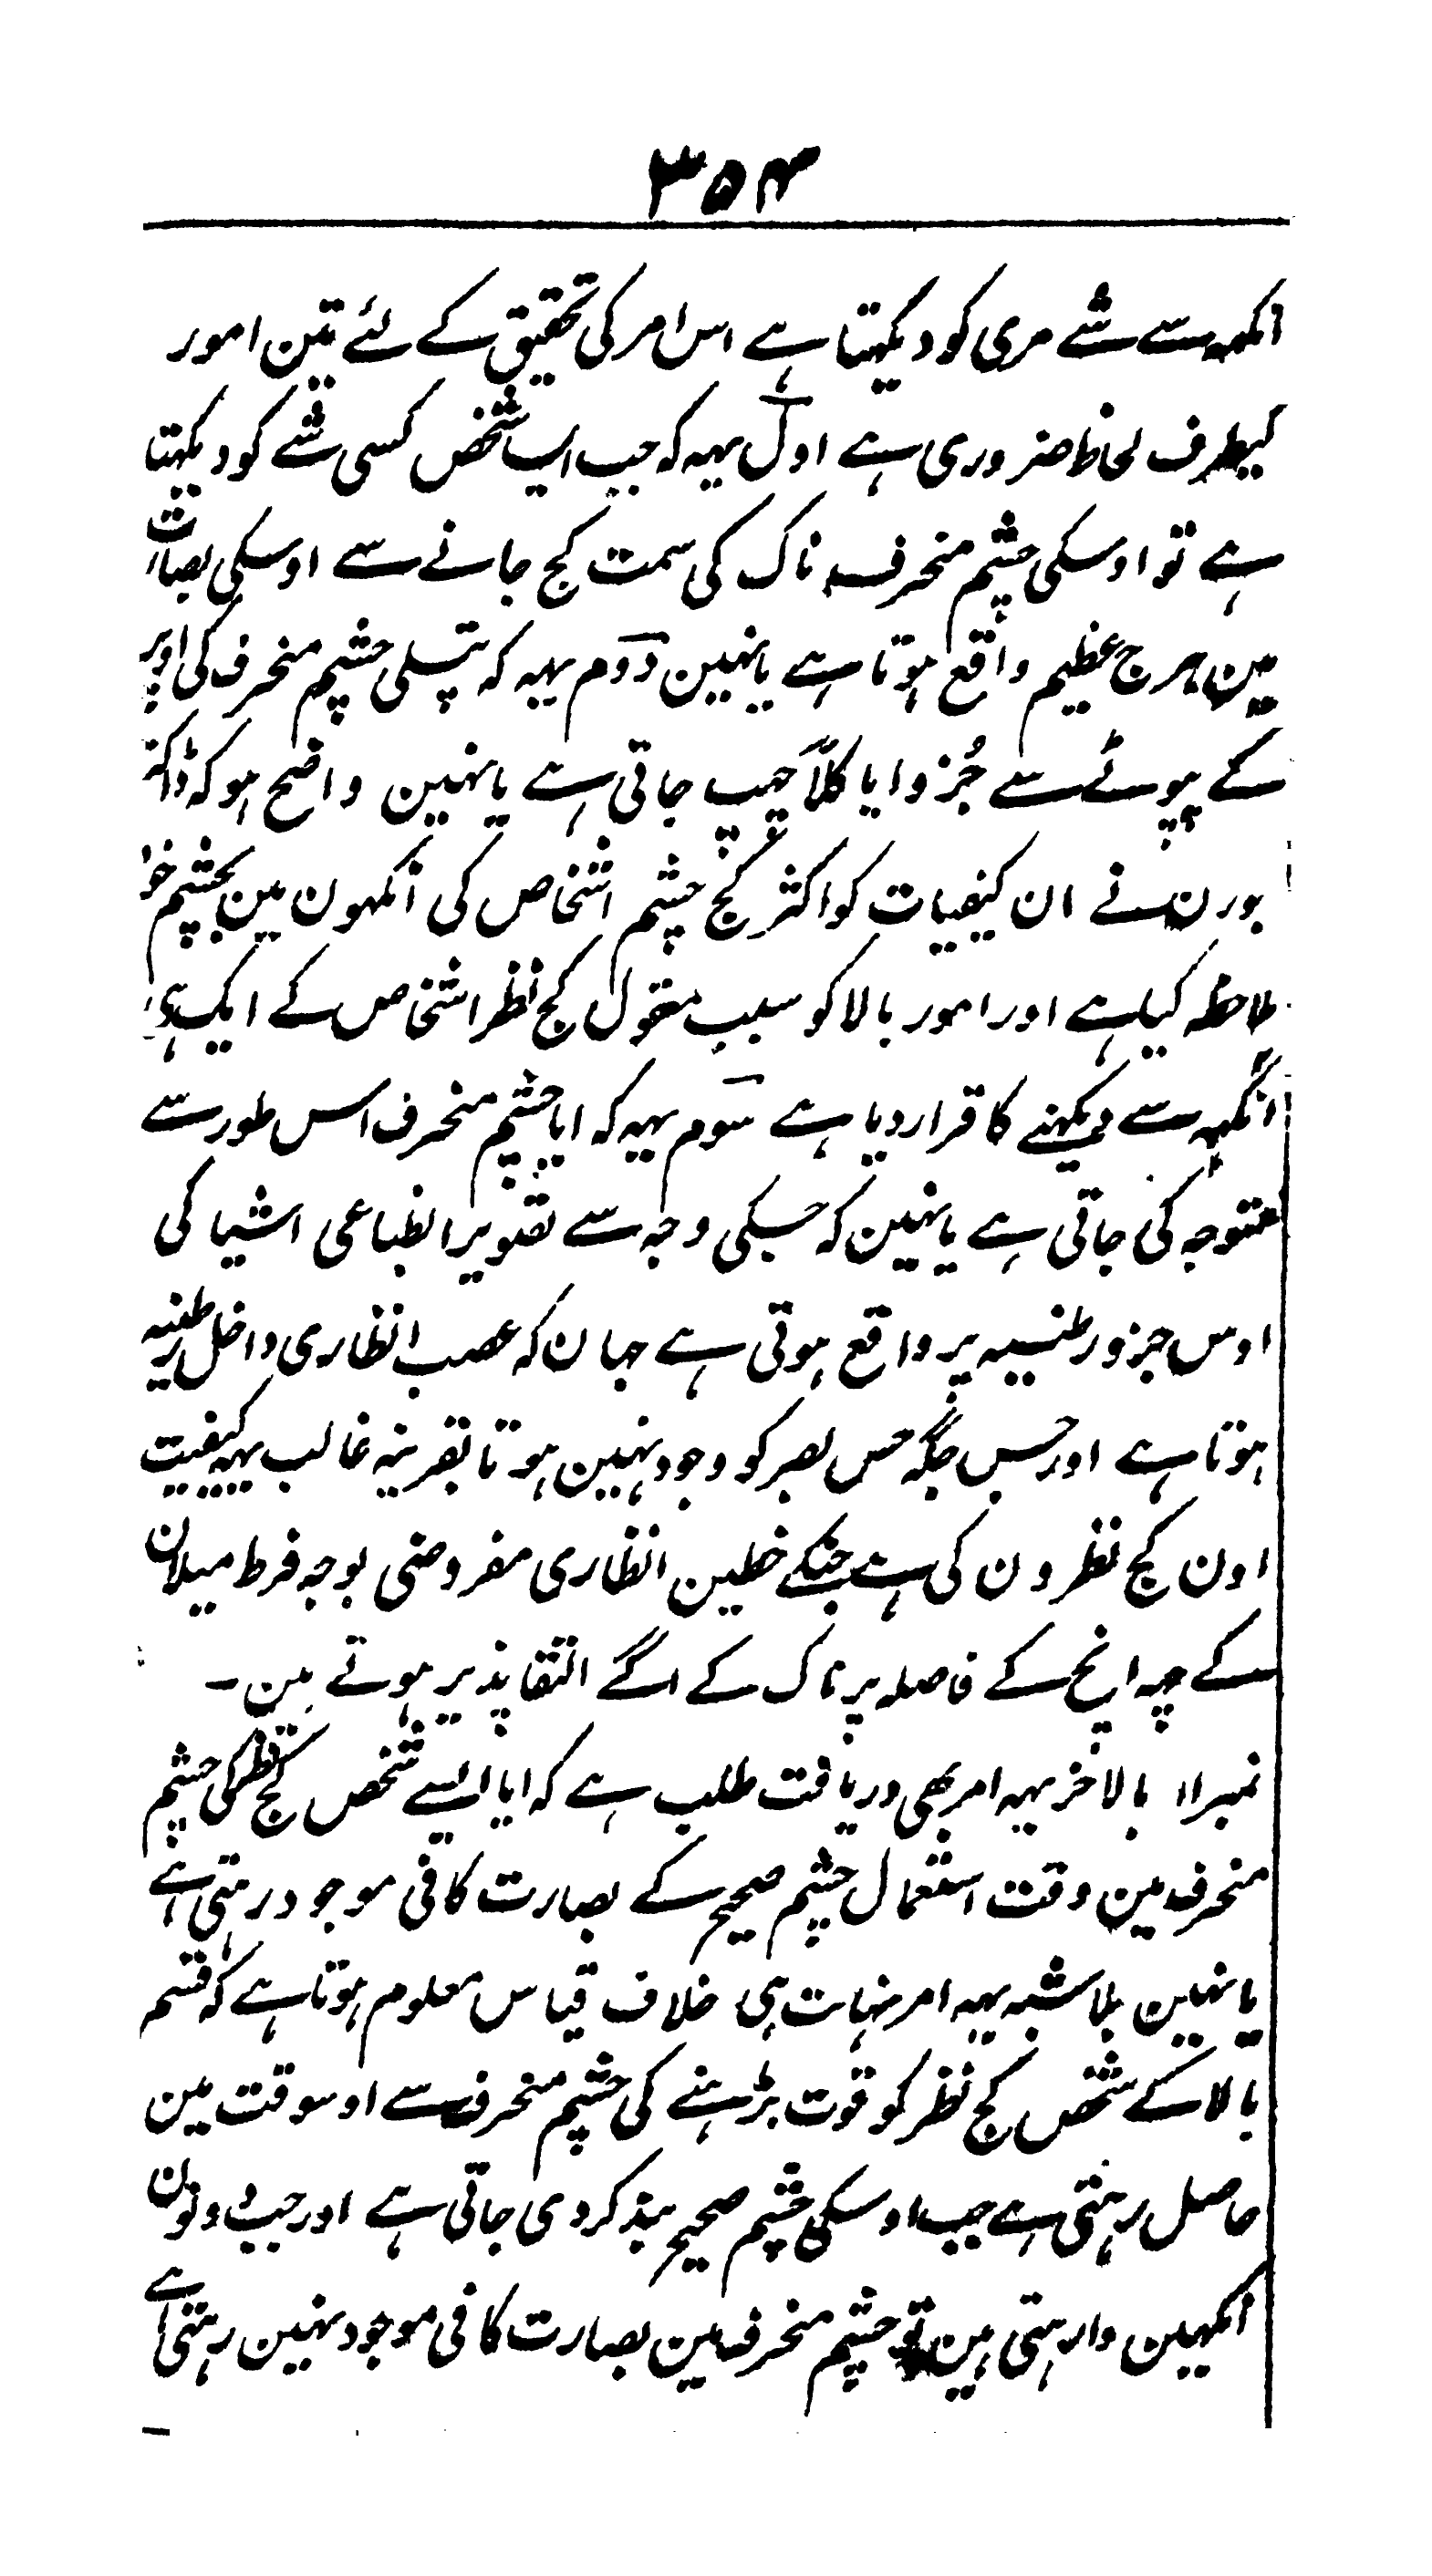 ۳۵۴
انکہہ سے شے مری کو دیکہتا ہے اس امر کی تحقیق کے لئے تین امور
کیطرف لحاظ ضروری ہے اول یہہ کہ جب ایسا شخص کسی شے کو دیکہتا
ہے تو اوسکی چشم منحرف ناک کی سمت کج جانے سے اوسکی بصارت
مین ہرج عظیم واقع ہوتا ہے یا نہین دوم یہہ کہ پتلی چشم منحرف کی اوپر
کے پپوٹے سے جُزوا یا کلاً چہپ جاتی ہے یا نہین واضح ہو کہ ڈاکٹر
بورن نے ان کیفیات کو اکثر کج چشم اشخاص کی انکہون مین بچشم خود
ملاحظہ کیا ہے اور امور بالا کو سبب معقول کج نظر اشخاص کے ایک ہی
انکہہ سے دیکہنے کا قرار دیا ہے سوم یہہ کہ ایا چشم منحرف اس طور سے
متوجہ کی جاتی ہے یا نہین کہ جسکی وجہ سے تصویر انطباعی اشیا کی
اوس جزو رطنیہ پر واقع ہوتی ہے جہان کہ عصب انظاری داخل رطنیہ
ہوتا ہے اور جس جگہ حس بصر کو وجود نہین ہوتا بقرینہ غالب یہہ کیفیت
اون کج نظرون کی ہے جنکے خطین انظاری مفروضی بوجہ فرط میلان
کے چہہ انچ کے فاصلہ پر ناک کے اگے التقا پذیر ہوتے ہین ۔
نمبر۱۱ بالاخر یہہ امر بھی دریافت طلب ہے کہ ایا ایسے شخص کج نظر کی چشم
منحرف مین وقت استعمال چشم صحیح کے بصارت کافی موجود رہتی ہے
یا نہین بلا شبہ یہہ امر نہایت ہی خلاف قیاس معلوم ہوتا ہے کہ قسم
بالا کے شخص کج نظر کو قوت پڑہنے کی چشم منحرف سے اوسوقت مین
حاصل رہتی ہے جب اوسکی چشم صحیح بند کر دی جاتی ہے اور جب دونون
انکہین وا رہتی ہین تو چشم منحرف مین بصارت کافی موجود نہین رہتی ہے